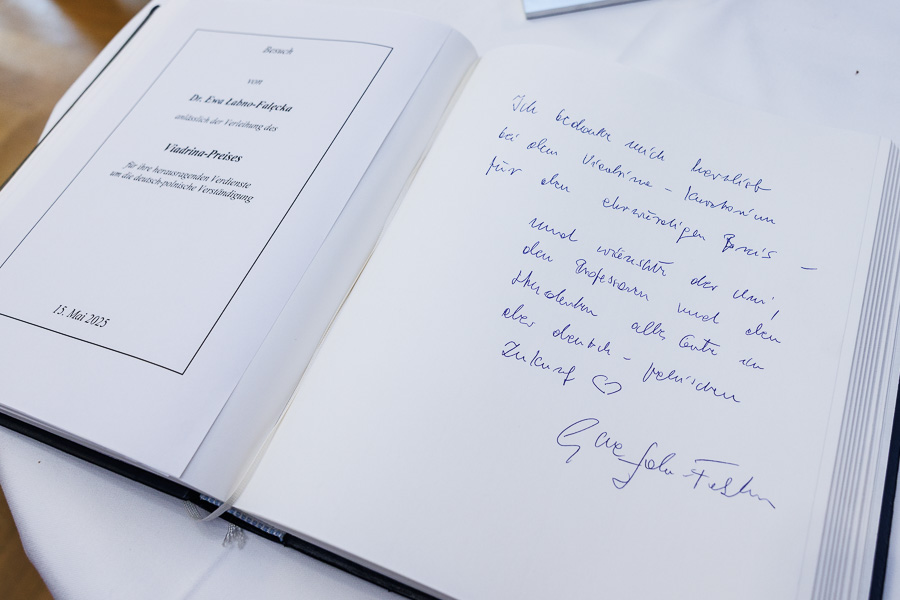 Besuch
von
Dr. Ewa Labno-Falęcka
anlässlich der Verleihung des
Viadrina-Preises
für ihre herausragenden Verdienste
um die deutsch-polnische Verständigung
15. Mai 2025
Ich bedanke mich herzlich
bei dem Viadrina-Kuratorium
für den ehrwürdigen Preis –
und wünsche der Uni,
den Professoren und den
Studenten alles Gute in
der deutsch-polnischen
Zukunft ♡